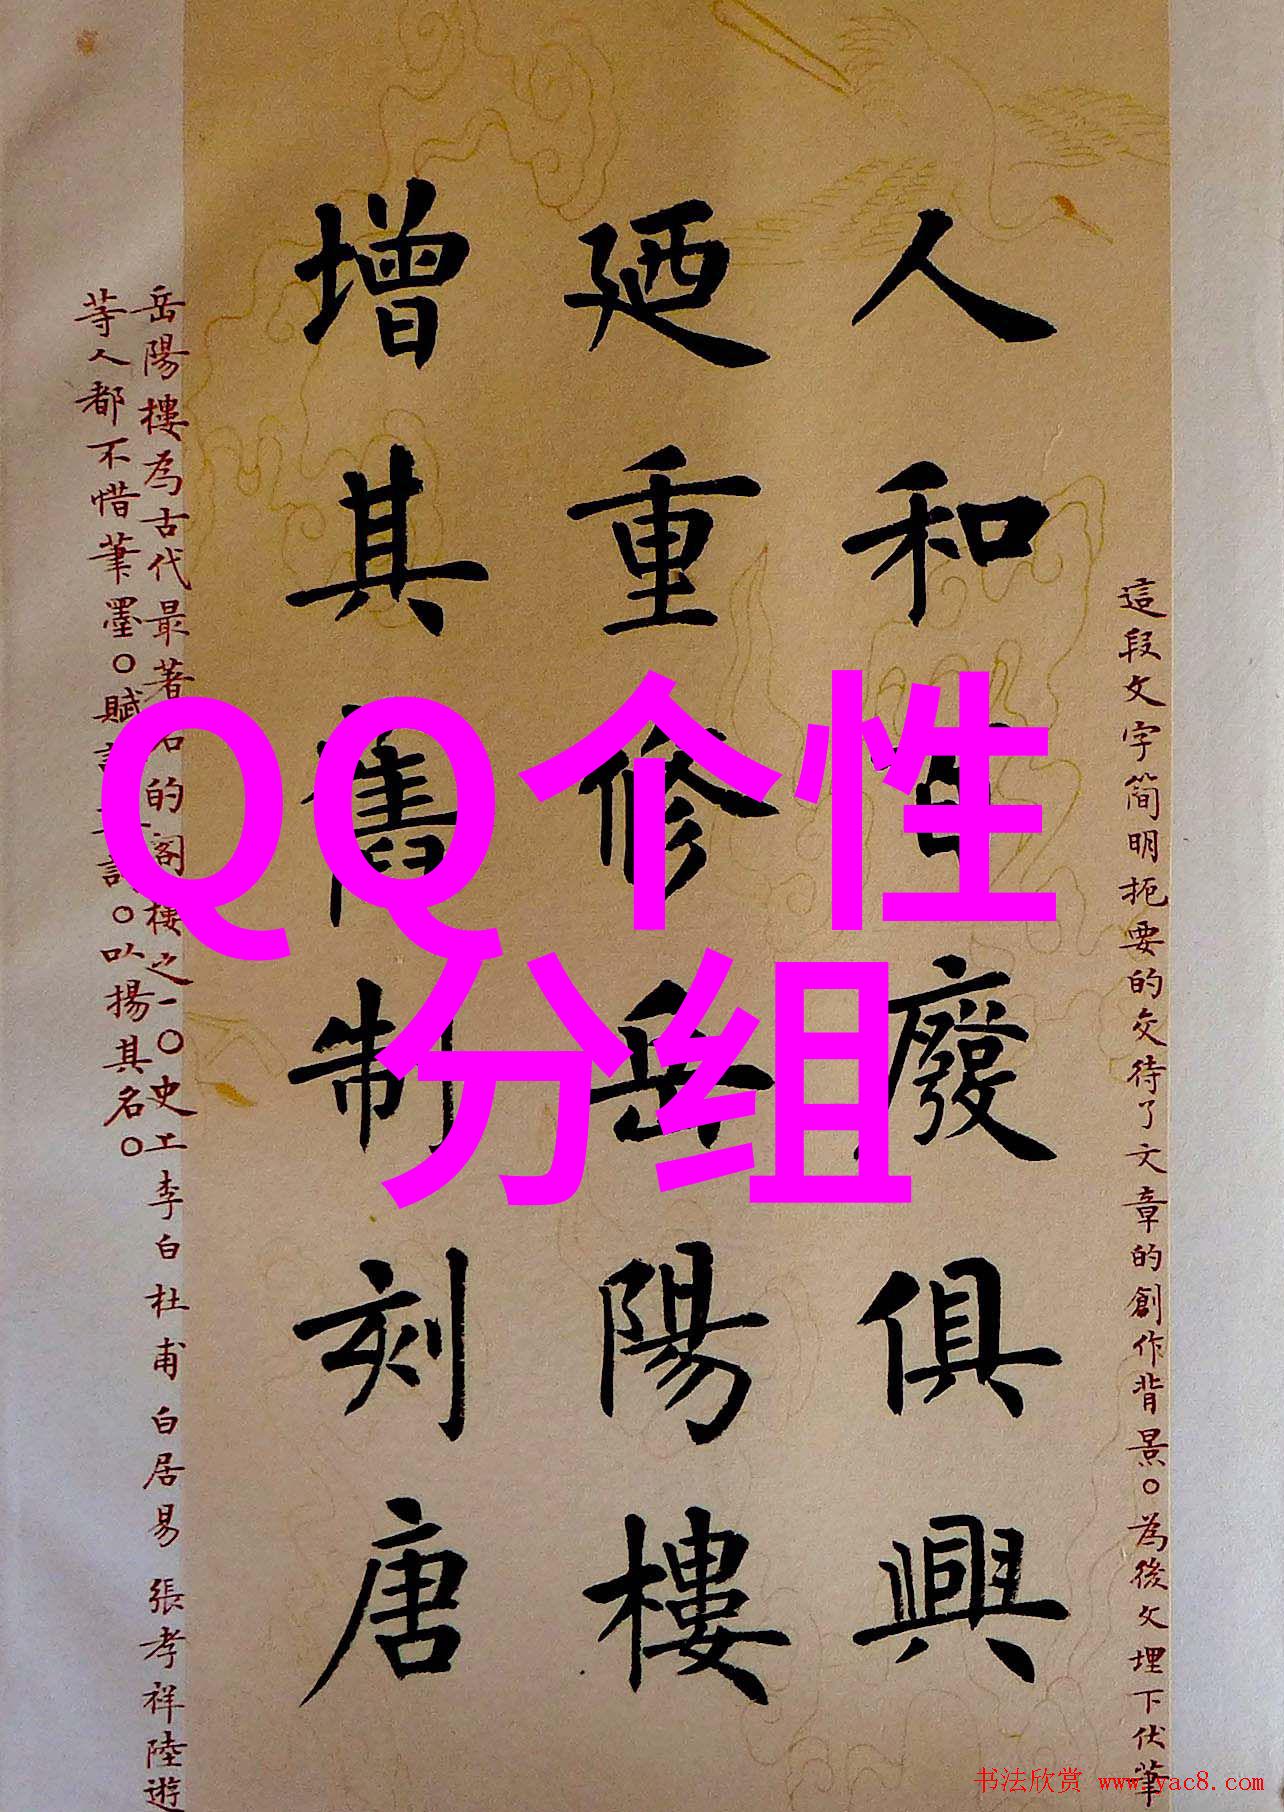 QQ个性
分组
這段文字簡明扼要的交待了文章的創作背景。為後文埋下伏筆
人和廢俱興
廼重修岳陽樓
增其舊制刻唐
岳陽樓為古代最著名的阁樓之一。史工李白杜甫白居易張孝祥陸遊
等人都不惜筆墨。賦。以揚其名。
书法欣赏 www.yac8.com